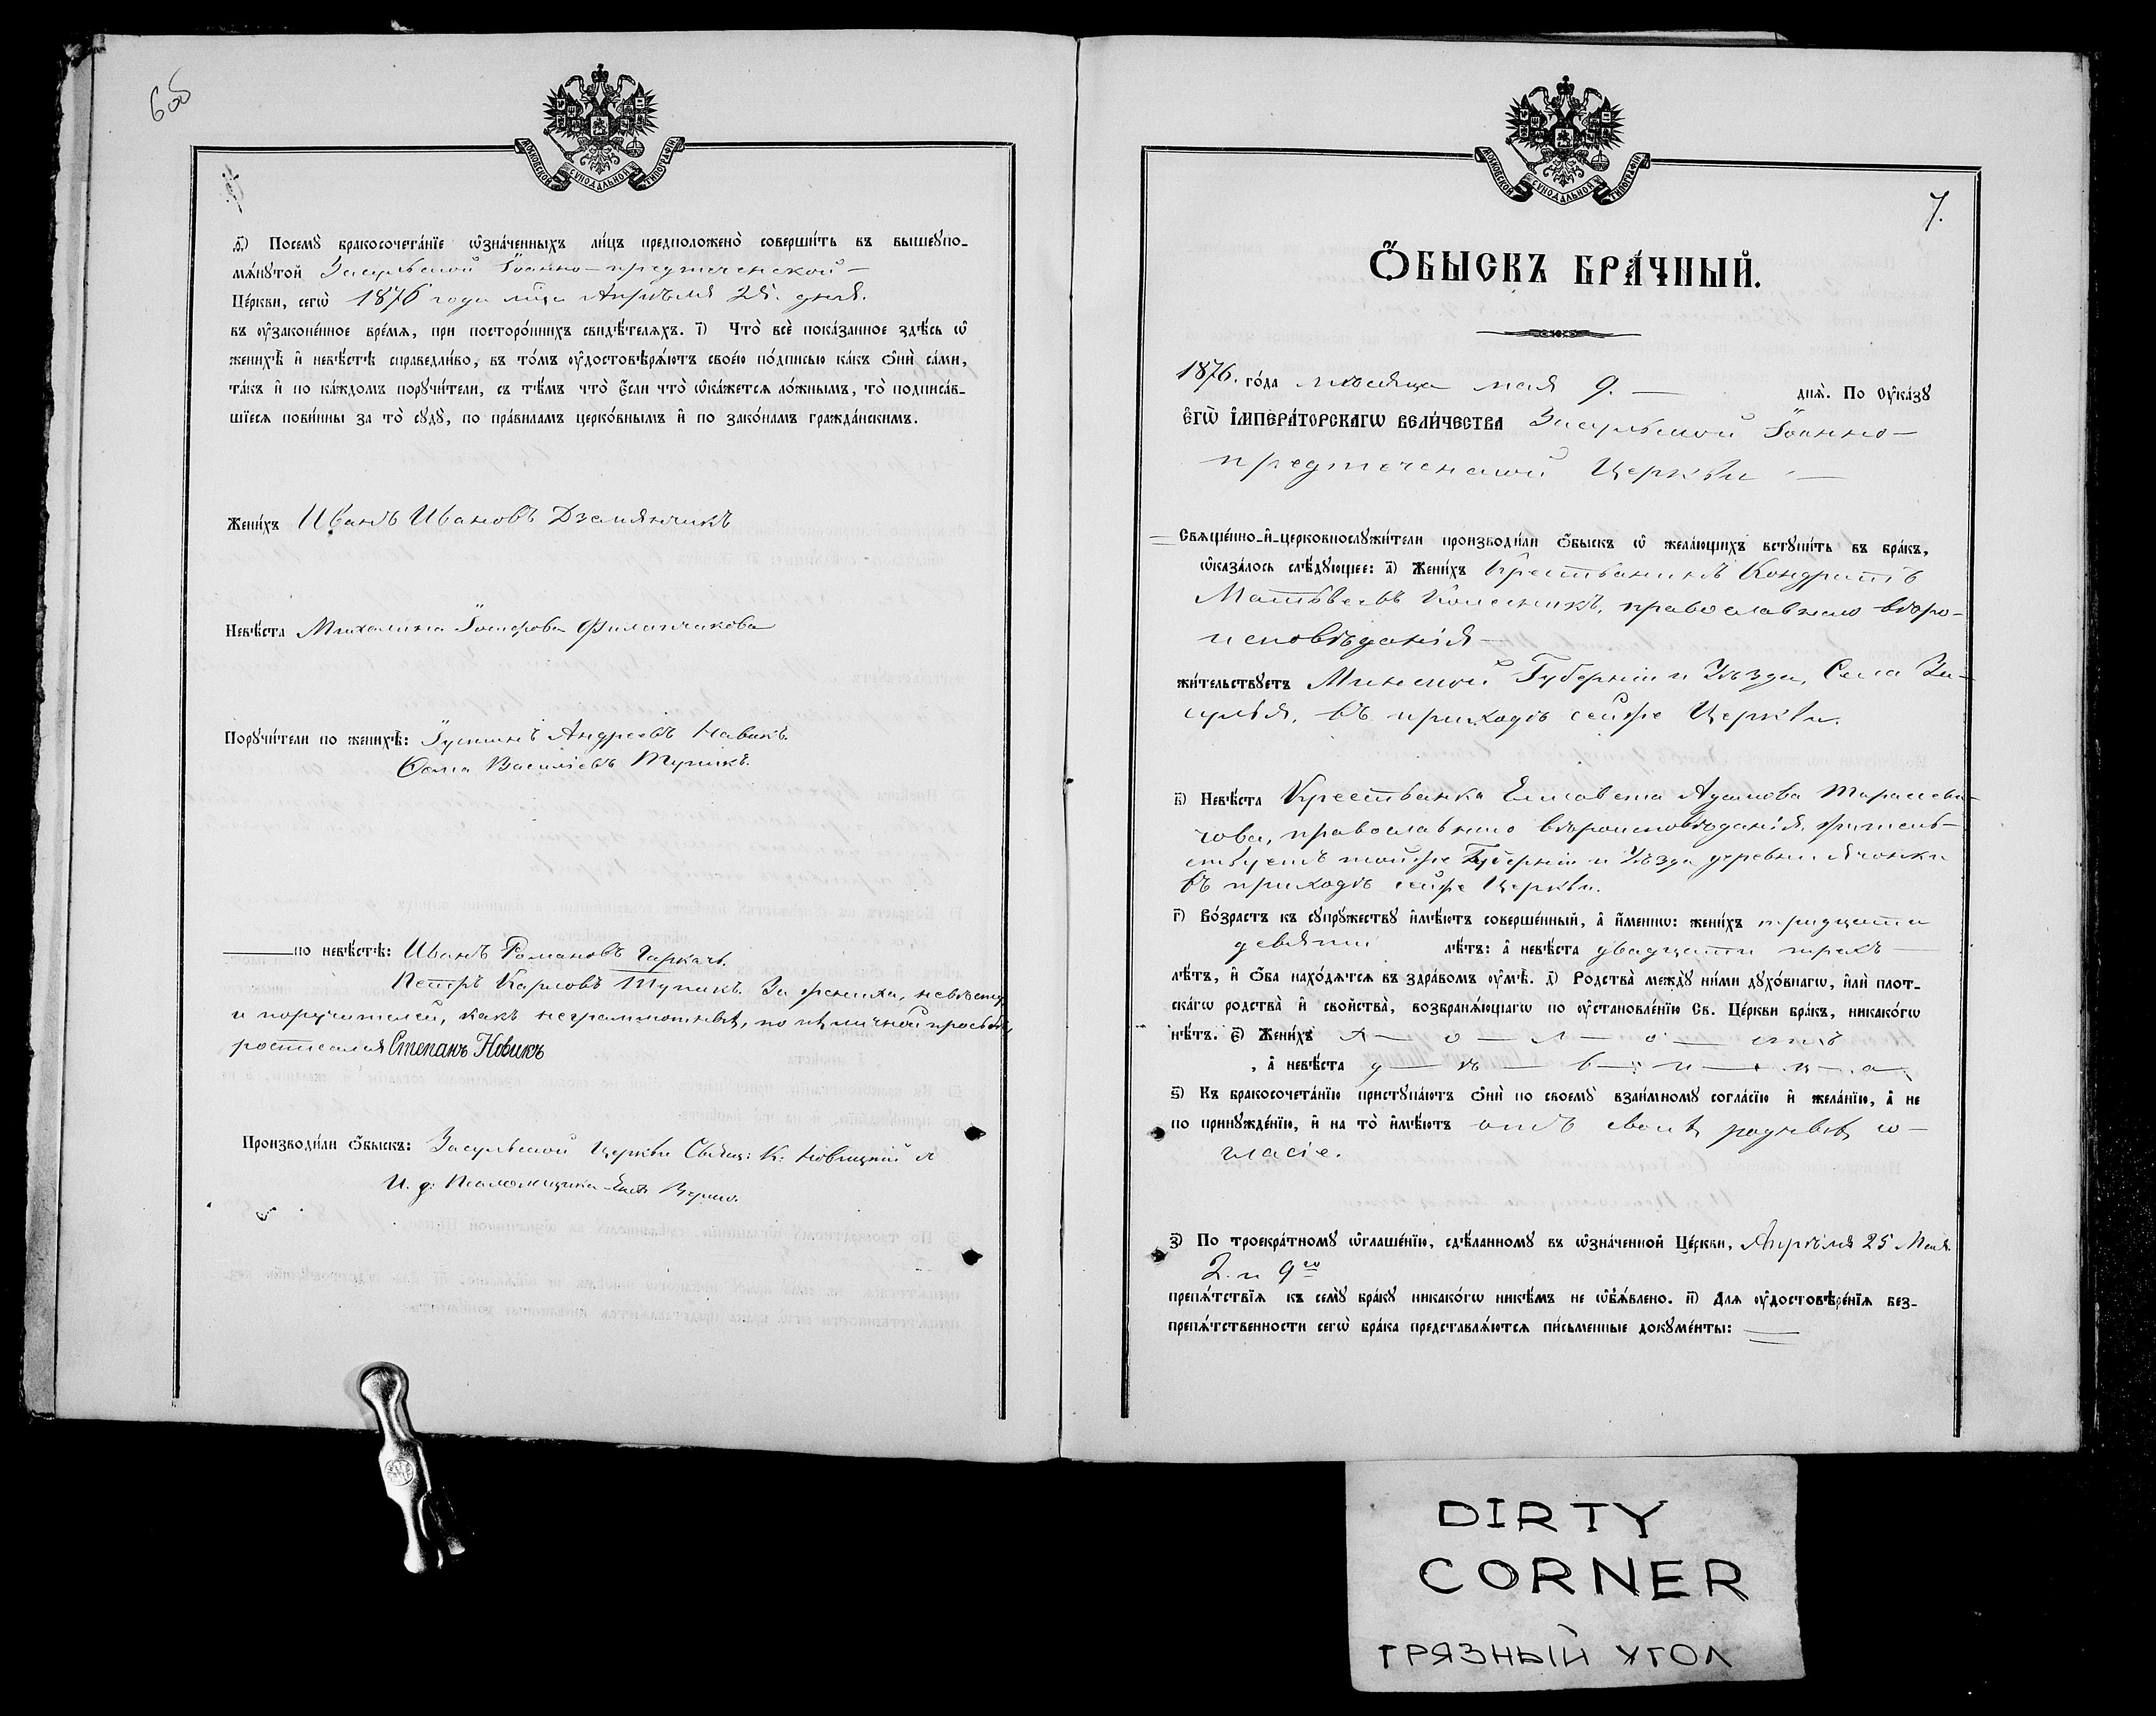 6об
МОСКОВСКОЙ СѴНОДАЛЬНОЙ ТИПОГРАФІИ
ѳ҃) Посемꙋ̀ бракосочета́нїе ѡ҆зна́ченныхъ ли́цъ предположено̀ соверши́ть въ вышеꙋпо-
мѧ́нꙋтой Засульской Іоанно-предтеченской -
Це́ркви, сегѡ̀ 1876 года м-ца Апрѣля 25. дня.
въ ᲂу҆законе́нное вре́мѧ, при посторо́ннихъ свидѣ́телѧхъ. і҃) Что̀ всѐ пока́занное здѣ́сь ѡ҆
женихѣ̀ и҆ невѣ́стѣ справедли́во, въ то́мъ ᲂу҆достовѣрѧ́ютъ свое́ю по́дписью ка́къ ѻ҆нѝ са́ми,
та́къ и҆ по ка́ждомъ поручи́тели, съ тѣ́мъ что̀ є҆́сли что̀ ѡ҆ка́жетсѧ ло́жнымъ, то̀ подписа́в-
шїесѧ пови́нны за то̀ сꙋдꙋ̀, по пра́виламъ церко́внымъ и҆ по зако́намъ гражда́нскимъ.
Жени́хъ Иванъ Ивановъ Дземянчикъ
Невѣ́ста Михалина Іосифова Филипчикова
Порꙋчи́тели по женихѣ̀: Іустинъ Андреевъ Навикъ.
Ѳома Василіевъ Тупикъ.
по невѣ́стѣ: Иванъ Романовъ Гаркачъ.
Петръ Карловъ Тупикъ. За жениха, невѣсту
и поручителей, какъ неграмотныхъ, по ихъ личной просьбѣ,
росписался Степанъ Новикъ
Производи́ли ѻ҆́быскъ: Засульской Церкви Свящ: К: Новицкій
И. д: Псаломщика
7.
МОСКОВСКОЙ СѴНОДАЛЬНОЙ ТИПОГРАФІИ
Ѻ҆́БЫСКЪ БРА́ЧНЫЙ.
1876. го́да мѣсяца мая 9. — днѧ̀. По ᲂу҆ка́зꙋ
Є҆ГѠ̀ И҆МПЕРА́ТОРСКАГѠ ВЕЛИ́ЧЕСТВА Засульской Іоанно-
предтеченской Церкви —
Свѧще́нно-и҆-церковнослꙋжи́тели производи́ли ѻ҆́быскъ ѡ҆ жела́ющихъ встꙋпи́ть въ бра́къ,
ѡ҆каза́лось слѣ́дꙋющее: а҃) Жени́хъ Крестьянинъ Кондратій
Матѳѣевъ Колесникъ, православнаго вѣро-
исповѣданія -
жи́тельствꙋетъ Минской Губерніи и Уѣзда, Села За-
сулья, въ приходѣ сейже Церкви.
в҃) Невѣ́ста Крестьянка Елисавета Адамова Тарасеви-
чова, православнаго вѣроисповѣданія, житель-
ствуетъ тойже Губерніи и Уѣзда деревни Ячонки
въ приходѣ сейже Церкви.
г҃) Во́зрастъ къ сꙋпрꙋ́жествꙋ и҆мѣ́ютъ соверше́нный, а҆ и҆́меннѡ: жени́хъ тридцати
девяти лѣ́тъ: а҆ невѣ́ста двадцати трехъ —
лѣ́тъ, и҆ ѻ҆́ба нахо́дѧтсѧ въ здра́вомъ ᲂу҆мѣ̀. д҃) Родства̀ междꙋ̀ ни́ми дꙋхо́внагѡ, и҆лѝ плот-
ска́гѡ родства̀ и҆ сво́йства, возбранѧ́ющагѡ по ᲂу҆становле́нїю Св. Це́ркви бра́къ, никако́гѡ
нѣ́тъ. є҃) Жени́хъ х — о — л — о — стъ
, а҆ невѣ́ста д — ѣ — в — и — ц — а,
ѕ҃) Къ бракосочета́нїю пристꙋпа́ютъ ѻ҆нѝ по своемꙋ̀ взаи́мномꙋ согла́сїю и҆ жела́нїю, а҆ не
по принꙋжде́нїю, и҆ на то̀ и҆мѣ́ютъ отъ своихъ родныхъ со-
гласіе.
з҃) По троекра́тномꙋ ѡ҆глаше́нїю, сдѣ́ланномꙋ въ ѡ҆зна́ченной Це́ркви, Апрѣля 25 Мая.
2. и 9го
препѧ́тствїѧ къ семꙋ̀ бра́кꙋ никако́гѡ никѣ́мъ не ѡ҆б̾ѧ́влено. и҃) Длѧ ᲂу҆достовѣре́нїѧ без-
препѧ́тственности сегѡ̀ бра́ка представлѧ́ютсѧ пи́сьменные докꙋме́нты: —
DIRTY
CORNER
ГРЯЗНЫЙ УГОЛ